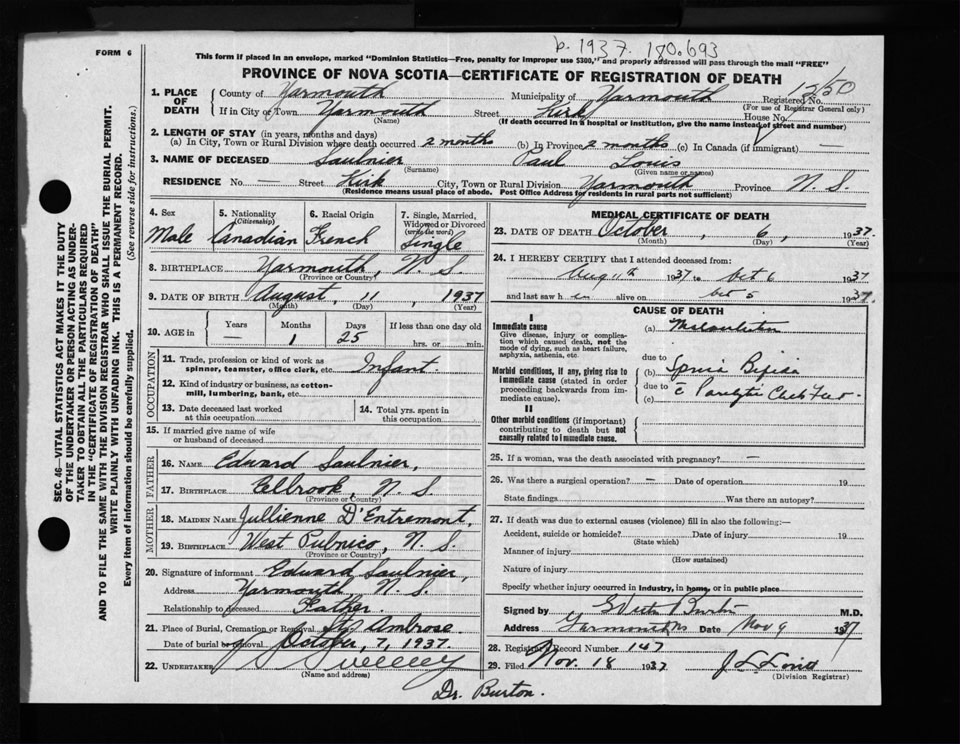 FORM 6
b. 1937. 180.693
This form if placed in an envelope, marked "Dominion Statistics—Free, penalty for improper use $300," and properly addressed will pass through the mail "FREE"
PROVINCE OF NOVA SCOTIA—CERTIFICATE OF REGISTRATION OF DEATH
SEC. 46—VITAL STATISTICS ACT MAKES IT THE DUTY
OF THE UNDERTAKER OR PERSON ACTING AS UNDER-
TAKER TO OBTAIN ALL THE PARTICULARS REQUIRED
IN THE "CERTIFICATE OF REGISTRATION OF DEATH"
AND TO FILE THE SAME WITH THE DIVISION REGISTRAR WHO SHALL ISSUE THE BURIAL PERMIT.
WRITE PLAINLY WITH UNFADING INK. THIS IS A PERMANENT RECORD.
Every item of information should be carefully supplied. (See reverse side for instructions.)
1. PLACE OF DEATH
County of Yarmouth Municipality of Yarmouth Registered No. 1250
(For use of Registrar General only)
If in City or Town Yarmouth Street Kirk House No.
(Name) (If death occurred in a hospital or institution, give the name instead of street and number)
2. LENGTH OF STAY (in years, months and days)
(a) In City, Town or Rural Division where death occurred 2 months (b) In Province 2 months (c) In Canada (if immigrant) —
3. NAME OF DECEASED Saulnier Paul Louis
(Surname) (Given name or names)
RESIDENCE No. — Street Kirk City, Town or Rural Division Yarmouth Province N. S.
(Residence means usual place of abode. Post Office Address for residents in rural parts not sufficient)
4. Sex
Male
5. Nationality
(Citizenship)
Canadian
6. Racial Origin
French
7. Single, Married,
Widowed or Divorced
(write the word)
Single
8. BIRTHPLACE Yarmouth, N. S.
(Province or Country)
9. DATE OF BIRTH August, 11, 1937
(Month) (Day) (Year)
10. AGE in
Years Months Days If less than one day old
— 1 25 hrs. or min.
OCCUPATION
11. Trade, profession or kind of work as
spinner, teamster, office clerk, etc. Infant.
12. Kind of industry or business, as cotton-
mill, lumbering, bank, etc.
13. Date deceased last worked
at this occupation
14. Total yrs. spent in
this occupation
15. If married give name of wife
or husband of deceased
FATHER
16. Name Edward Saulnier,
17. Birthplace Ellbrook, N. S.
(Province or Country)
MOTHER
18. Maiden Name Jullienne D'Entremont,
19. Birthplace West Pubnico, N. S.
(Province or Country)
20. Signature of informant Edward Saulnier,
Address Yarmouth N. S.
Relationship to deceased Father.
21. Place of Burial, Cremation or Removal St. Ambrose.
Date of burial or removal October, 7, 1937.
22. UNDERTAKER Sweeney
(Name and address)
Dr. Burton.
MEDICAL CERTIFICATE OF DEATH
23. DATE OF DEATH October, 6, 1937.
(Month) (Day) (Year)
24. I HEREBY CERTIFY that I attended deceased from:
Aug 11th 1937 to Oct 6 1937
and last saw h im alive on Oct 5 1937.
CAUSE OF DEATH
I
Immediate cause
Give disease, injury or complica-
tion which caused death, not the
mode of dying, such as heart failure,
asphyxia, asthenia, etc.
(a) Malnutrition
due to
Morbid conditions, if any, giving rise to
immediate cause (stated in order
proceeding backwards from im-
mediate cause).
(b) Spina Bifida
due to
(c) c Paralytic Club Feet.
II
Other morbid conditions (if important)
contributing to death but not
causally related to immediate cause.
25. If a woman, was the death associated with pregnancy? —
26. Was there a surgical operation? — Date of operation 19
State findings Was there an autopsy?
27. If death was due to external causes (violence) fill in also the following:—
Accident, suicide or homicide? Date of injury 19
(State which)
Manner of injury
(How sustained)
Nature of injury
Specify whether injury occurred in industry, in home, or in public place
Signed by Burton M.D.
Address Yarmouth NS Date Nov 9 1937
28. Registrar Record Number 147
29. Filed Nov. 18 1937
(Division Registrar)